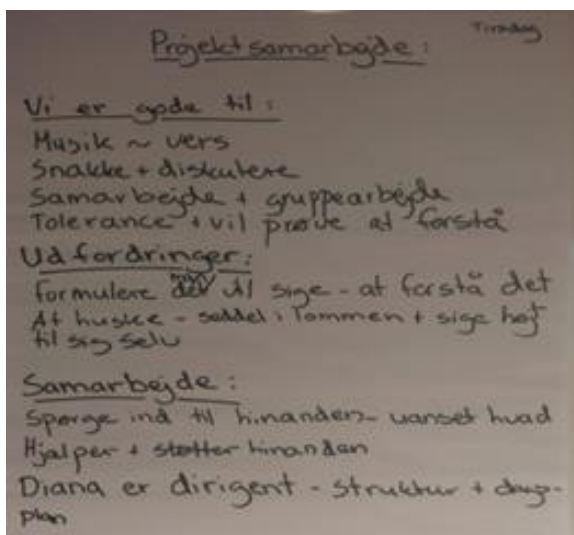 Tirsdag
Projektsamarbejde:
Vi er gode til:
Musik ~ vers
Snakke + diskutere
Samarbejde + gruppearbejde
Tolerance + vil prøve at forstå
Udfordringer:
formulere det til sige - at forstå det
At huske - seddel i lommen + sige højt
til sig selv
Samarbejde:
Spørge ind til hinanden - uanset hvad
Hjælper + støtter hinanden
Diana er dirigent - struktur + dags-
plan